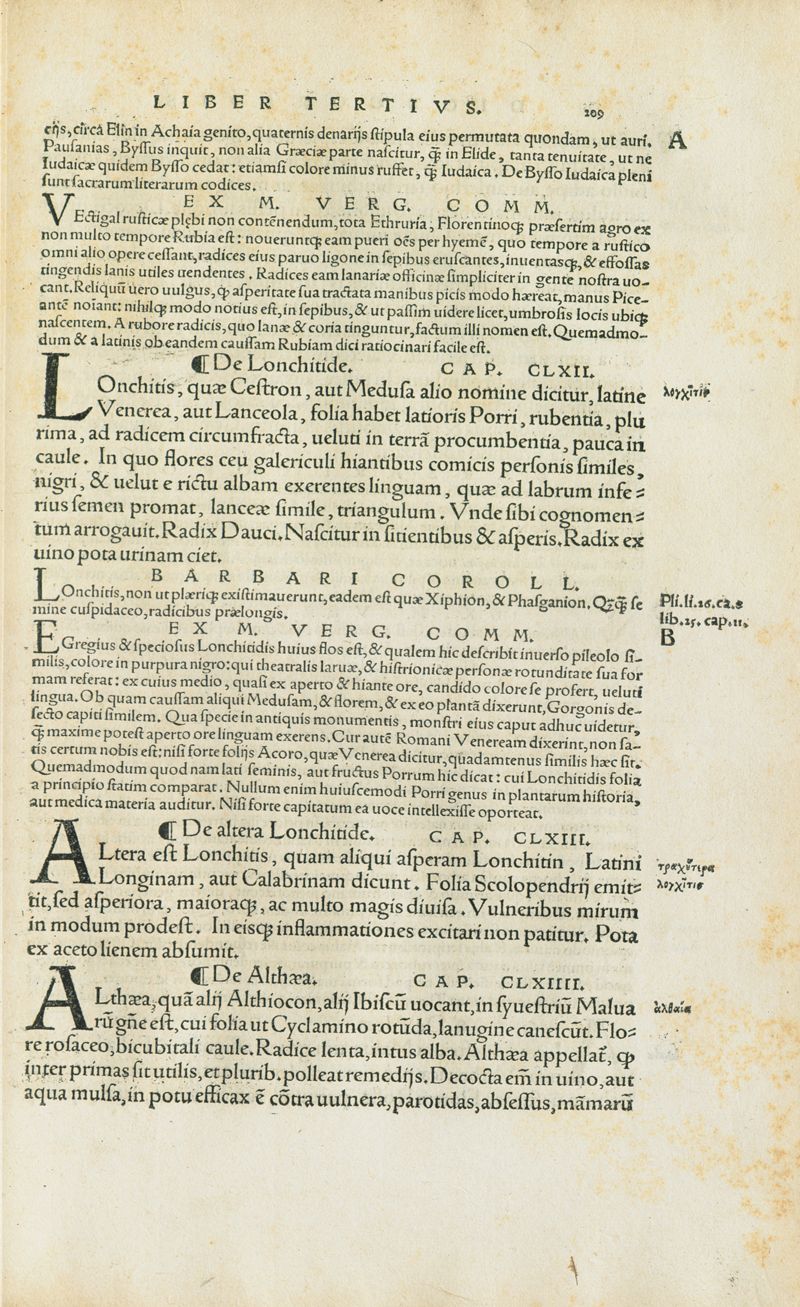 LIBER TERTIVS. 209
cijs, circa Elin in Achaia genito, quaternis denarijs stipula eius permutata quondam, ut auri. A
Pausanias, Byssus inquit, non alia Græciæ parte nascitur, ꝙ̃ in Elide, tanta tenuitate, ut ne
Iudaicæ quidem Bysso cedat: etiamsi colore minus ruffet, ꝙ̃ Iudaica. De Bysso Iudaica pleni
sunt sacrarum literarum codices.
EX M. VERG. COMM.
VEctigal rusticæ plebi non contēnendum, tota Ethruria, Florentinoq; præsertim agro ex
non multo tempore Rubia est: noueruntq; eam pueri oēs per hyemē, quo tempore a rustico
omni alio opere cessant, radices eius paruo ligone in sepibus eruscantes, inuentasq;, & effossas
tingendis lanis utiles uendentes. Radices eam lanariæ officinæ simpliciter in gente nostra uo-
cant. Reliquū uero uulgus, ꝙ asperitate sua tractata manibus picis modo hæreat, manus Pice-
antē notant: nihilq; modo notius est, in sepibus, & ut passim uidere licet, umbrosis locis ubiq;
nascentem. A rubore radicis, quo lanæ & coria tinguntur, factum illi nomen est. Quemadmo-
dum & a latinis ob eandem caussam Rubiam dici ratiocinari facile est.
¶ De Lonchitide. CAP. CLXII.
LOnchitis, quæ Cestron, aut Medusa alio nomine dicitur, latine λογχῖτις
Venerea, aut Lanceola, folia habet latioris Porri, rubentia, plu
rima, ad radicem circumfracta, ueluti in terrā procumbentia, pauca in
caule. In quo flores ceu galericuli hiantibus comicis personis similes,
nigri, & uelut e rictu albam exerentes linguam, quæ ad labrum infe-
rius semen promat, lanceæ simile, triangulum. Vnde sibi cognomen-
tum arrogauit. Radix Dauci. Nascitur in sitientibus & asperis. Radix ex
uino pota urinam ciet.
BARBARI COROLL.
LOnchitis, non ut plæriq; existimauerunt, eadem est quæ Xiphion, & Phasganion. Qꝫꝙ̃ se Pli. li. 26. ca. 8
mine cuspidaceo, radicibus prælongis. lib. 25. cap. 11.
EX M. VERG. COMM. B
EGregius & speciosus Lonchitidis huius flos est, & qualem hic describit inuerso pileolo si-
milis, colore in purpura nigro: qui theatralis laruæ, & histrionicæ personæ rotunditate sua for
mam referat: ex cuius medio, quasi ex aperto & hiante ore, candido colore se profert, ueluti
lingua. Ob quam caussam aliqui Medusam, & florem, & ex eo plantā dixerunt, Gorgonis de-
secto capiti similem. Qua specie in antiquis monumentis, monstri eius caput adhuc uidetur,
ꝙ̃ maxime potest aperto ore linguam exerens. Cur autē Romani Veneream dixerint, non sa-
tis certum nobis est: nisi forte folijs Acoro, quæ Venerea dicitur, quadamtenus similis hæc sit.
Quemadmodum quod nam lati seminis, aut fructus Porrum hic dicat: cui Lonchitidis folia
a principio statim comparat. Nullum enim huiuscemodi Porri genus in plantarum historia,
aut medica materia auditur. Nisi forte capitatum ea uoce intellexisse oporteat.
¶ De altera Lonchitide. CAP. CLXIII.
ALtera est Lonchitis, quam aliqui asperam Lonchitin, Latini τραχῦτερα
Longinam, aut Calabrinam dicunt. Folia Scolopendrij emit- λογχῖτις
tit, sed asperiora, maioraq;, ac multo magis diuisa. Vulneribus mirum
in modum prodest. In eisq; inflammationes excitari non patitur. Pota
ex aceto lienem absumit.
¶ De Althæa. CAP. CLXIIII.
ALthæa, quā alij Althiocon, alij Ibiscū uocant, in syuestriū Malua ἀλθαία
rū gñe est, cui folia ut Cyclamino rotūda, lanugine canescūt. Flo-
re rosaceo, bicubitali caule. Radice lenta, intus alba. Althæa appellat̃, ꝙ
inter primas sit utilis, et plurib. polleat remedijs. Decocta em̄ in uino, aut
aqua mulsa, in potu efficax ē cōtra uulnera, parotidas, abscessus, māmarū